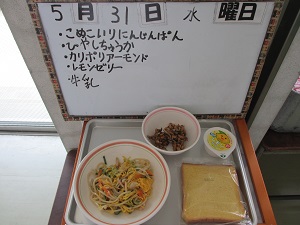 5月31日水曜日
・こめこいりにんじんぱん
・ひやしちゅうか
・カリポリアーモンド
・レモンゼリー
・牛乳